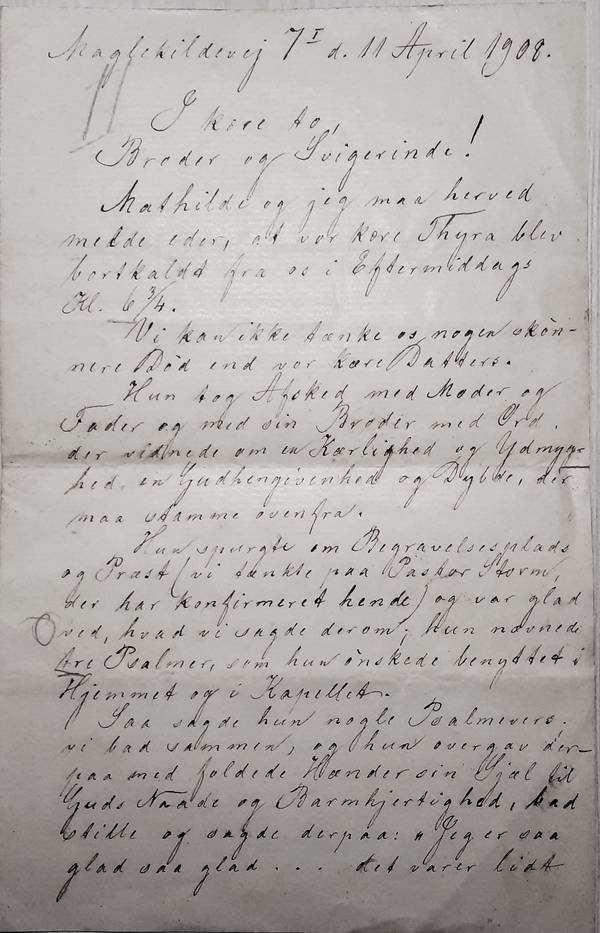 Maglekildevej 7 I d. 11 April 1908.
I kære to,
Broder og Svigerinde!
Mathilde og jeg maa herved
melde eder, at vor kære Thyra blev
bortkaldt fra os i Eftermiddags
Kl. 6 3/4.
Vi kan ikke tænke os nogen skøn-
nere Død end vor kære Datters.
Hun tog Afsked med Moder og
Fader og med sin Broder med Ord,
der vidnede om en Kærlighed og Ydmyg-
hed, en Gudhengivenhed og Dybde, der
maa stamme ovenfra.
Hun spurgte om Begravelsesplads
og Præst (vi tænkte paa Pastor Storm,
der har konfirmeret hende) og var glad
ved, hvad vi sagde derom; hun nævnede
tre Psalmer, som hun ønskede benyttet i
Hjemmet og i Kapellet.
Saa sagde hun nogle Psalmevers,
vi bad sammen, og hun overgav der-
paa med foldede Hænder sin Sjæl til
Guds Naade og Barmhjertighed, bad
stille og sagde derpaa: "Jeg er saa
glad saa glad . . . det varer lidt